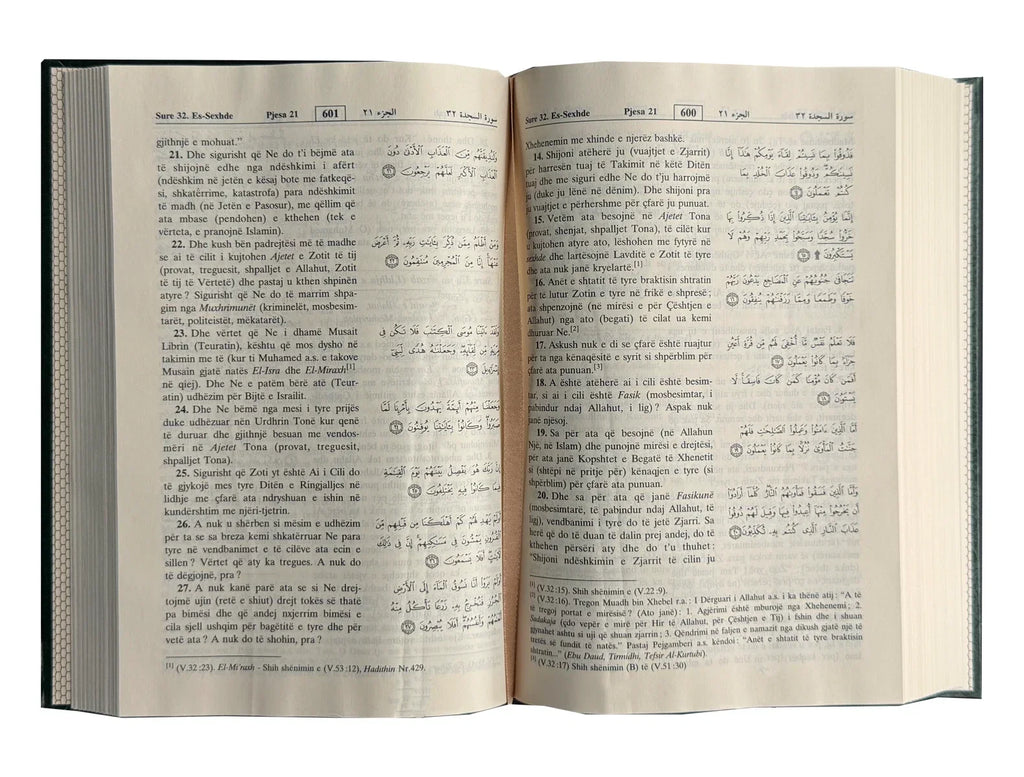 Sure 32. Es-Sexhde Pjesa 21 600 الجزء ٢١ سورة السجدة ٣٢
Xhehenemin me xhinde e njerëz bashkë.
14. Shijoni atëherë ju (vuajtjet e Zjarrit)
për harresën tuaj të Takimit në këtë Ditën
tuaj dhe me siguri edhe Ne do t'ju harrojmë
ju (duke ju lënë në dënim). Dhe shijoni pra
ju vuajtjet e përhershme për çfarë ju punuat.
15. Vetëm ata besojnë në Ajetet Tona
(provat, shenjat, shpalljet Tona), të cilët kur
u kujtohen atyre ato, lëshohen me fytyrë në
sexhde dhe lartësojnë Lavditë e Zotit të tyre
dhe ata nuk janë kryelartë.[1]
16. Anët e shtatit të tyre braktisin shtratin
për të lutur Zotin e tyre në frikë e shpresë;
ata shpenzojnë (në mirësi e për Çështjen e
Allahut) nga ato (begati) të cilat ua kemi
dhuruar Ne.[2]
17. Askush nuk e di se çfarë është ruajtur
për ta nga kënaqësitë e syrit si shpërblim për
çfarë ata punuan.[3]
18. A është atëherë ai i cili është besim-
tar, si ai i cili është Fasik (mosbesimtar, i
pabindur ndaj Allahut, i lig)? Aspak nuk
janë njësoj.
19. Sa për ata që besojnë (në Allahun
Një, në Islam) dhe punojnë mirësi e drejtësi,
për ata janë Kopshtet e Begatë të Xhenetit
si (shtëpi në pritje për) kënaqjen e tyre (si
shpërblim) për çfarë ata punuan.
20. Dhe sa për ata që janë Fasikunë
(mosbesimtarë, të pabindur ndaj Allahut, të
ligj), vendbanimi i tyre do të jetë Zjarri. Sa
herë që do të duan të dalin prej andej, do të
kthehen përsëri aty dhe do t'u thuhet:
"Shijoni ndëshkimin e Zjarrit të cilin ju
فَذُوقُوا۟ بِمَا نَسِيتُمْ لِقَآءَ يَوْمِكُمْ هَٰذَآ إِنَّا
نَسِينَٰكُمْ وَذُوقُوا۟ عَذَابَ ٱلْخُلْدِ بِمَا
كُنتُمْ تَعْمَلُونَ ١٤
إِنَّمَا يُؤْمِنُ بِـَٔايَٰتِنَا ٱلَّذِينَ إِذَا ذُكِّرُوا۟ بِهَا
خَرُّوا۟ سُجَّدًا وَسَبَّحُوا۟ بِحَمْدِ رَبِّهِمْ وَهُمْ لَا
يَسْتَكْبِرُونَ ۩ ١٥
تَتَجَافَىٰ جُنُوبُهُمْ عَنِ ٱلْمَضَاجِعِ يَدْعُونَ رَبَّهُمْ
خَوْفًا وَطَمَعًا وَمِمَّا رَزَقْنَٰهُمْ يُنفِقُونَ ١٦
فَلَا تَعْلَمُ نَفْسٌ مَّآ أُخْفِىَ لَهُم مِّن قُرَّةِ أَعْيُنٍ
جَزَآءًۢ بِمَا كَانُوا۟ يَعْمَلُونَ ١٧
أَفَمَن كَانَ مُؤْمِنًا كَمَن كَانَ فَاسِقًا لَّا
يَسْتَوُۥنَ ١٨
أَمَّا ٱلَّذِينَ ءَامَنُوا۟ وَعَمِلُوا۟ ٱلصَّٰلِحَٰتِ فَلَهُمْ
جَنَّٰتُ ٱلْمَأْوَىٰ نُزُلًۢا بِمَا كَانُوا۟ يَعْمَلُونَ ١٩
وَأَمَّا ٱلَّذِينَ فَسَقُوا۟ فَمَأْوَىٰهُمُ ٱلنَّارُ كُلَّمَآ أَرَادُوٓا۟
أَن يَخْرُجُوا۟ مِنْهَآ أُعِيدُوا۟ فِيهَا وَقِيلَ لَهُمْ ذُوقُوا۟
عَذَابَ ٱلنَّارِ ٱلَّذِى كُنتُم بِهِۦ تُكَذِّبُونَ ٢٠
[1] (V.32:15). Shih shënimin e (V.22:9).
[2] (V.32:16). Tregon Muadh bin Xhebel r.a.: I Dërguari i Allahut a.s. i ka thënë atij: "A të
të tregoj portat e mirësisë? (Ato janë): 1. Agjërimi është mburojë nga Xhehenemi; 2.
Sadakaja (çdo vepër e mirë për Hir të Allahut, për Çështjen e Tij) i fshin dhe i shuan
gjynahet ashtu si uji që shuan zjarrin; 3. Qëndrimi në faljen e namazit nga dikush gjatë një të
tretës së fundit të natës." Pastaj Pejgamberi a.s. këndoi: "Anët e shtatit të tyre braktisin
shtratin..." (Ebu Daud, Tirmidhi, Tefsir Al-Kurtubi).
[3] (V.32:17) Shih shënimin (B) të (V.51:30)
Sure 32. Es-Sexhde Pjesa 21 601 الجزء ٢١ سورة السجدة ٣٢
gjithnjë e mohuat."
21. Dhe sigurisht që Ne do t'i bëjmë ata
të shijojnë edhe nga ndëshkimi i afërt
(ndëshkim në jetën e kësaj bote me fatkeqë-
si, shkatërrime, katastrofa) para ndëshkimit
të madh (në Jetën e Pasosur), me qëllim që
ata mbase (pendohen) e kthehen (tek e
vërteta, e pranojnë Islamin).
22. Dhe kush bën padrejtësi më të madhe
se ai të cilit i kujtohen Ajetet e Zotit të tij
(provat, treguesit, shpalljet e Allahut, Zotit
të tij të Vërtetë) dhe pastaj u kthen shpinën
atyre? Sigurisht që Ne do të marrim shpa-
gim nga Muxhrimunët (kriminelët, mosbesim-
tarët, politeistët, mëkatarët).
23. Dhe vërtet që Ne i dhamë Musait
Librin (Teuratin), kështu që mos dysho në
takimin me të (kur ti Muhamed a.s. e takove
Musain gjatë natës El-Isra dhe El-Miraxh[1]
në qiej). Dhe Ne e patëm bërë atë (Teur-
atin) udhëzim për Bijtë e Israilit.
24. Dhe Ne bëmë nga mesi i tyre prijës
duke udhëzuar nën Urdhrin Tonë kur qenë
të duruar dhe gjithnjë besuan me vendos-
mëri në Ajetet Tona (provat, treguesit,
shpalljet Tona).
25. Sigurisht që Zoti yt është Ai i Cili do
të gjykojë mes tyre Ditën e Ringjalljes në
lidhje me çfarë ata ndryshuan e ishin në
kundërshtim me njëri-tjetrin.
26. A nuk u shërben si mësim e udhëzim
për ta se sa breza kemi shkatërruar Ne para
tyre në vendbanimet e të cilëve ata ecin e
sillen? Vërtet që aty ka tregues. A nuk do
të dëgjojnë, pra?
27. A nuk kanë parë ata se si Ne drej-
tojmë ujin (retë e shiut) drejt tokës së thatë
pa bimësi dhe që andej nxjerrim bimësi e
cila sjell ushqim për bagëtitë e tyre dhe për
vetë ata? A nuk do të shohin, pra?
وَلَنُذِيقَنَّهُم مِّنَ ٱلْعَذَابِ ٱلْأَدْنَىٰ دُونَ
ٱلْعَذَابِ ٱلْأَكْبَرِ لَعَلَّهُمْ يَرْجِعُونَ ٢١
وَمَنْ أَظْلَمُ مِمَّن ذُكِّرَ بِـَٔايَٰتِ رَبِّهِۦ ثُمَّ أَعْرَضَ
عَنْهَآ إِنَّا مِنَ ٱلْمُجْرِمِينَ مُنتَقِمُونَ ٢٢
وَلَقَدْ ءَاتَيْنَا مُوسَى ٱلْكِتَٰبَ فَلَا تَكُن فِى
مِرْيَةٍ مِّن لِّقَآئِهِۦ وَجَعَلْنَٰهُ هُدًى لِّبَنِىٓ
إِسْرَٰٓءِيلَ ٢٣
وَجَعَلْنَا مِنْهُمْ أَئِمَّةً يَهْدُونَ بِأَمْرِنَا لَمَّا
صَبَرُوا۟ وَكَانُوا۟ بِـَٔايَٰتِنَا يُوقِنُونَ ٢٤
إِنَّ رَبَّكَ هُوَ يَفْصِلُ بَيْنَهُمْ يَوْمَ ٱلْقِيَٰمَةِ
فِيمَا كَانُوا۟ فِيهِ يَخْتَلِفُونَ ٢٥
أَوَلَمْ يَهْدِ لَهُمْ كَمْ أَهْلَكْنَا مِن قَبْلِهِم مِّنَ
ٱلْقُرُونِ يَمْشُونَ فِى مَسَٰكِنِهِمْ إِنَّ فِى ذَٰلِكَ
لَـَٔايَٰتٍ أَفَلَا يَسْمَعُونَ ٢٦
أَوَلَمْ يَرَوْا۟ أَنَّا نَسُوقُ ٱلْمَآءَ إِلَى ٱلْأَرْضِ
ٱلْجُرُزِ فَنُخْرِجُ بِهِۦ زَرْعًا تَأْكُلُ مِنْهُ
أَنْعَٰمُهُمْ وَأَنفُسُهُمْ أَفَلَا يُبْصِرُونَ ٢٧
[1] (V.32:23). El-Mi'raxh - Shih shënimin e (V.53:12), Hadithin Nr.429.